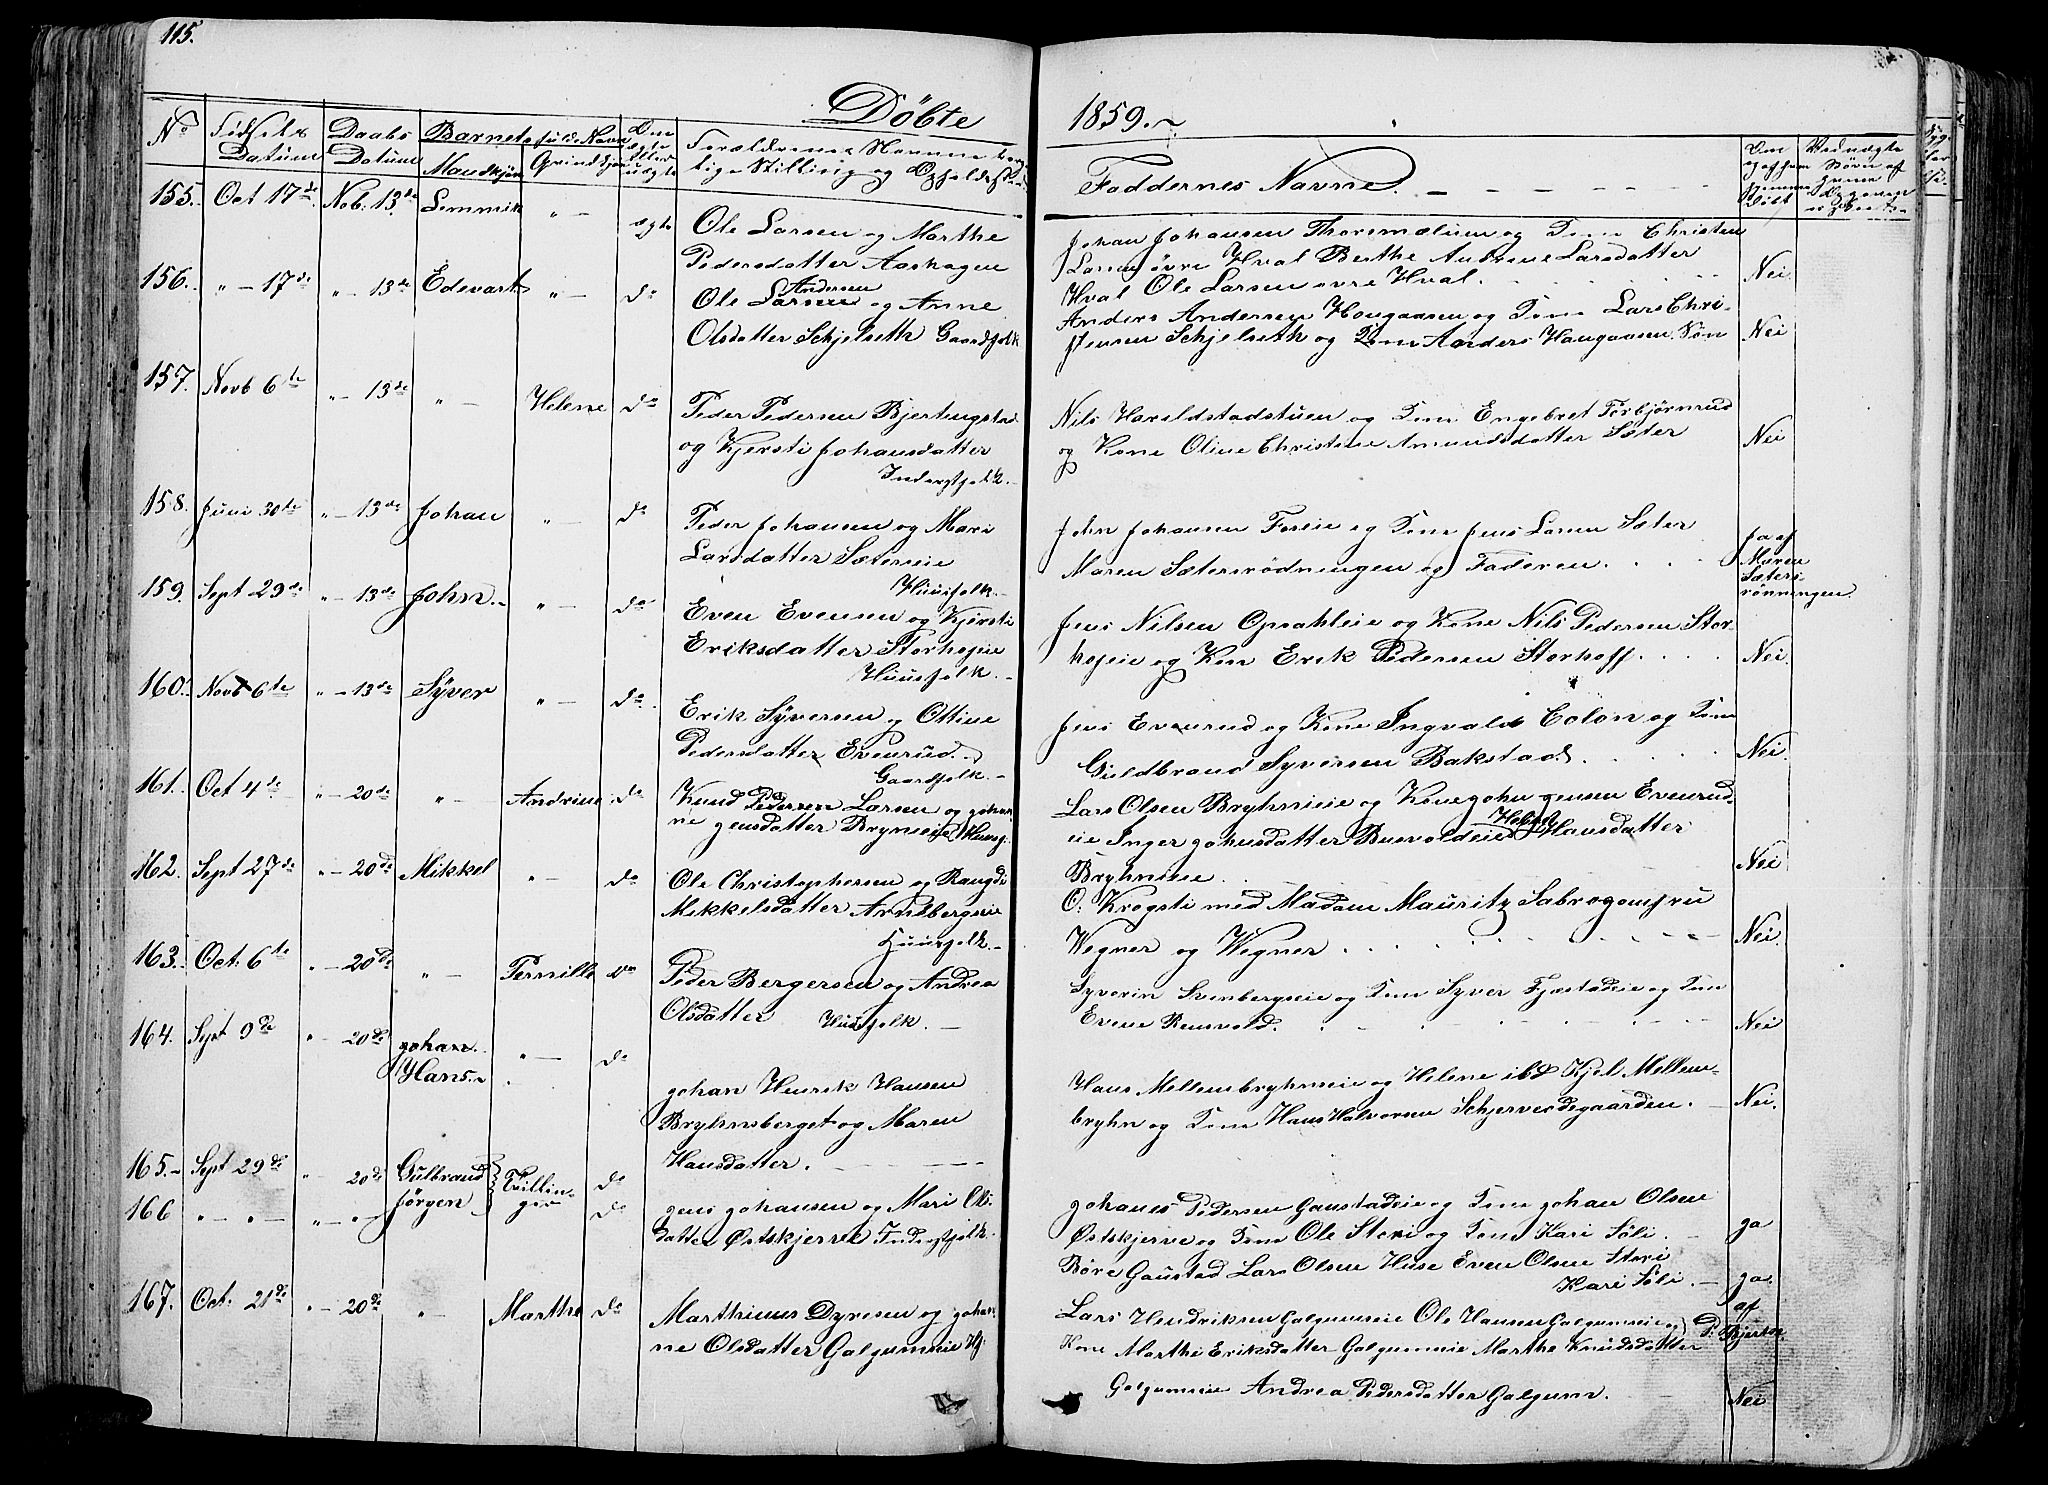 115.
Döbte 1859.
No Fødsels Datum Daabs Datum Barnets fulde Navn Mandkjøn Qvindkjøn Om ægte eller uægte Forældrenes Navne Stilling og Opholdssted
Faddernes Navne.
155. Oct 17de Nob. 13de Lemmik " ægte Ole Larsen og Marthe
Pedersdatter Aashagen
Johan Johansen Thorsmælum og Kone Christen
Larsen övre Hval Berthe Larsdatter
Hval Ole Larsen övre Hval. Nei
156. " 17de " 13de Edevart " do Ole Larsen Andersen og Anne
Olsdatter Schjelseth Gaardfolk
Anders Andersen Haugaasen og Kone Lars Chri-
stensen Schjelseth og Kone Anders Haugaasen Søn Nei
157. Novb 6te " 13de " Helene do Peder Pedersen Bjertingstad
og Kjersti Johansdatter
Inderstfolk.
Nils Haraldstadstuen og Kone Engebret Torbjørnrud
og Kone Oline Christine Amundsdatter Sæter Nei
158. Juni 30te " 13de Johan " do Peder Johansen og Mari
Larsdatter Sætereie
Huusfolk.
John Johannsen og Kone Jens Larsen Sæter
Maren Sætersrödningen og Faderen. ja af
Maren
Sæters
rönningen.
159. Sept 29de " 13de John. " do Even Evensen og Kjersti
Eriksdatter Storhofeie
Huusfolk.
Jens Nilsen Opsahleie og Kone Nils Pedersen Stor-
hofeie og Kon Erik Pedersen Storhoff. Nei
160. Novb 6te " 13de Syver " do Erik Syversen og Ottine
Pedersdatter Evenrud.
Gaardfolk.
Jens Evenrud og Kone Ingvald Colon og Kone
Guldbrand Syversen Bakstad. Nei
161. Oct 4de " 20de " Andrine do Knud Pedersen Larsen og Johan-
ne Jensdatter Bryneie Huusf.
Lars Olsen Bryhneie og Kone John Jensen Evenrud-
eie Inger Johnsdatter Hansdatter
Bryhneie. Nei
162. Sept 27de " 20de Mikkel " do Ole Christophersen og Rangdi
Mikkelsdatter Arnebergseie
Huusfolk.
O. Krogsti med Madam Mauritz Jomfru
Wegner og Wegner. Nei
163. Oct. 6te " 20de " Pernille do Peder Bergersen og Andrea
Olsdatter Huusfolk.
Syverin Svenbergseie og Kone Syver Fjæstadeie og Kone
Evene Rensvold. Nei
164. Sept 9de " 20de Johan
Hans. " do
Johan Henrik Hansen
Bryhnsberget og Maren
Hansdatter.
Hans Mellembryhneie og Helene ibd Kjel Mellem-
bryhn og Kone Hans Halvorsen Schjervesdegaarden. Nei.
165. Sept 29de " 20de Gulbrand Tvillin- do
166 " " " " Jörgen ger do
Jens Johansen og Mari Ols-
datter Østskjerve Inderstfolk.
Johanes Pedersen Gaustadeie og Kone Johan Olsen
Østskjerve og Kone Ole Steri og Kone Kari Söli. Ja
Böre Gaustad Lars Olsen Huse Even Olsen Steri
Kari Söli. Ja.
af
167. Oct. 21de " 20de " Marthe do Marthinus Dyresen og Johan-
ne Olsdatter Galgumeie Hf.
Lars Hendriksen Galgumeie Ole Hansen Galgumeie og
Kone Marthe Eriksdatter Galgumeie Marthe Knudsdatter
Galgumeie Andrea Pedersdatter Galgum. Nei